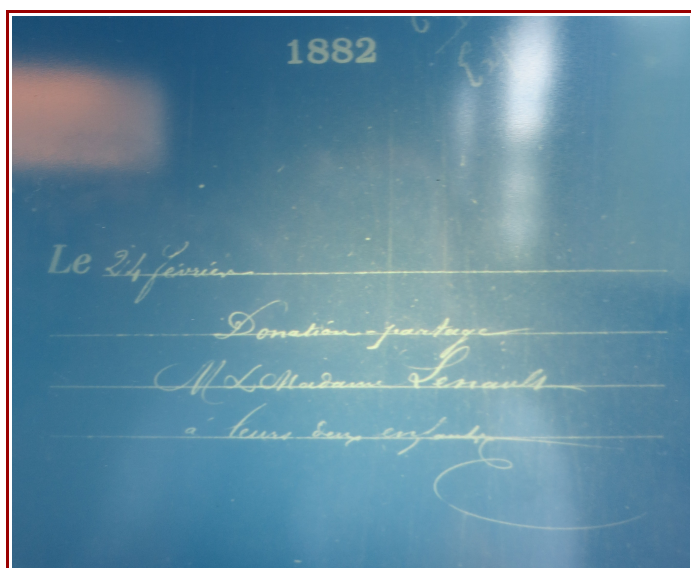 1882
Le 24 février
Donation-partage
M & Madame Lenault
à leurs deux enfants